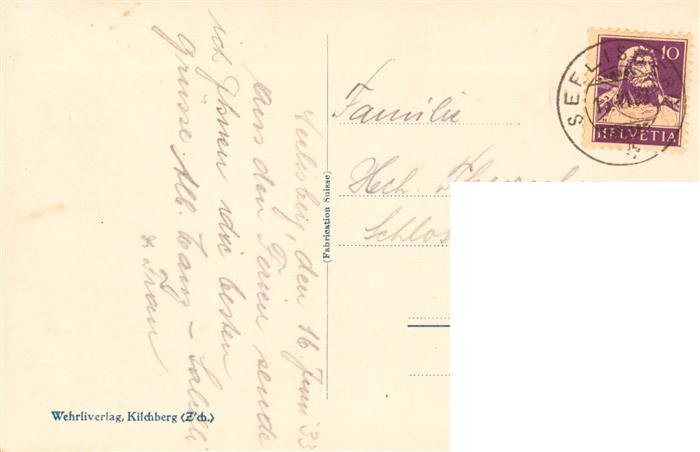 Seelisberg, den 16. Juni 33
Aus den Ferien sende
ich Ihnen die besten
Grüsse Alb. Lang -
& Frau
(Fabrication Suisse)
Wehrliverlag, Kilchberg (Z'ch.)
10
HELVETIA
SEELIS
Familie
Hch.
Schlos